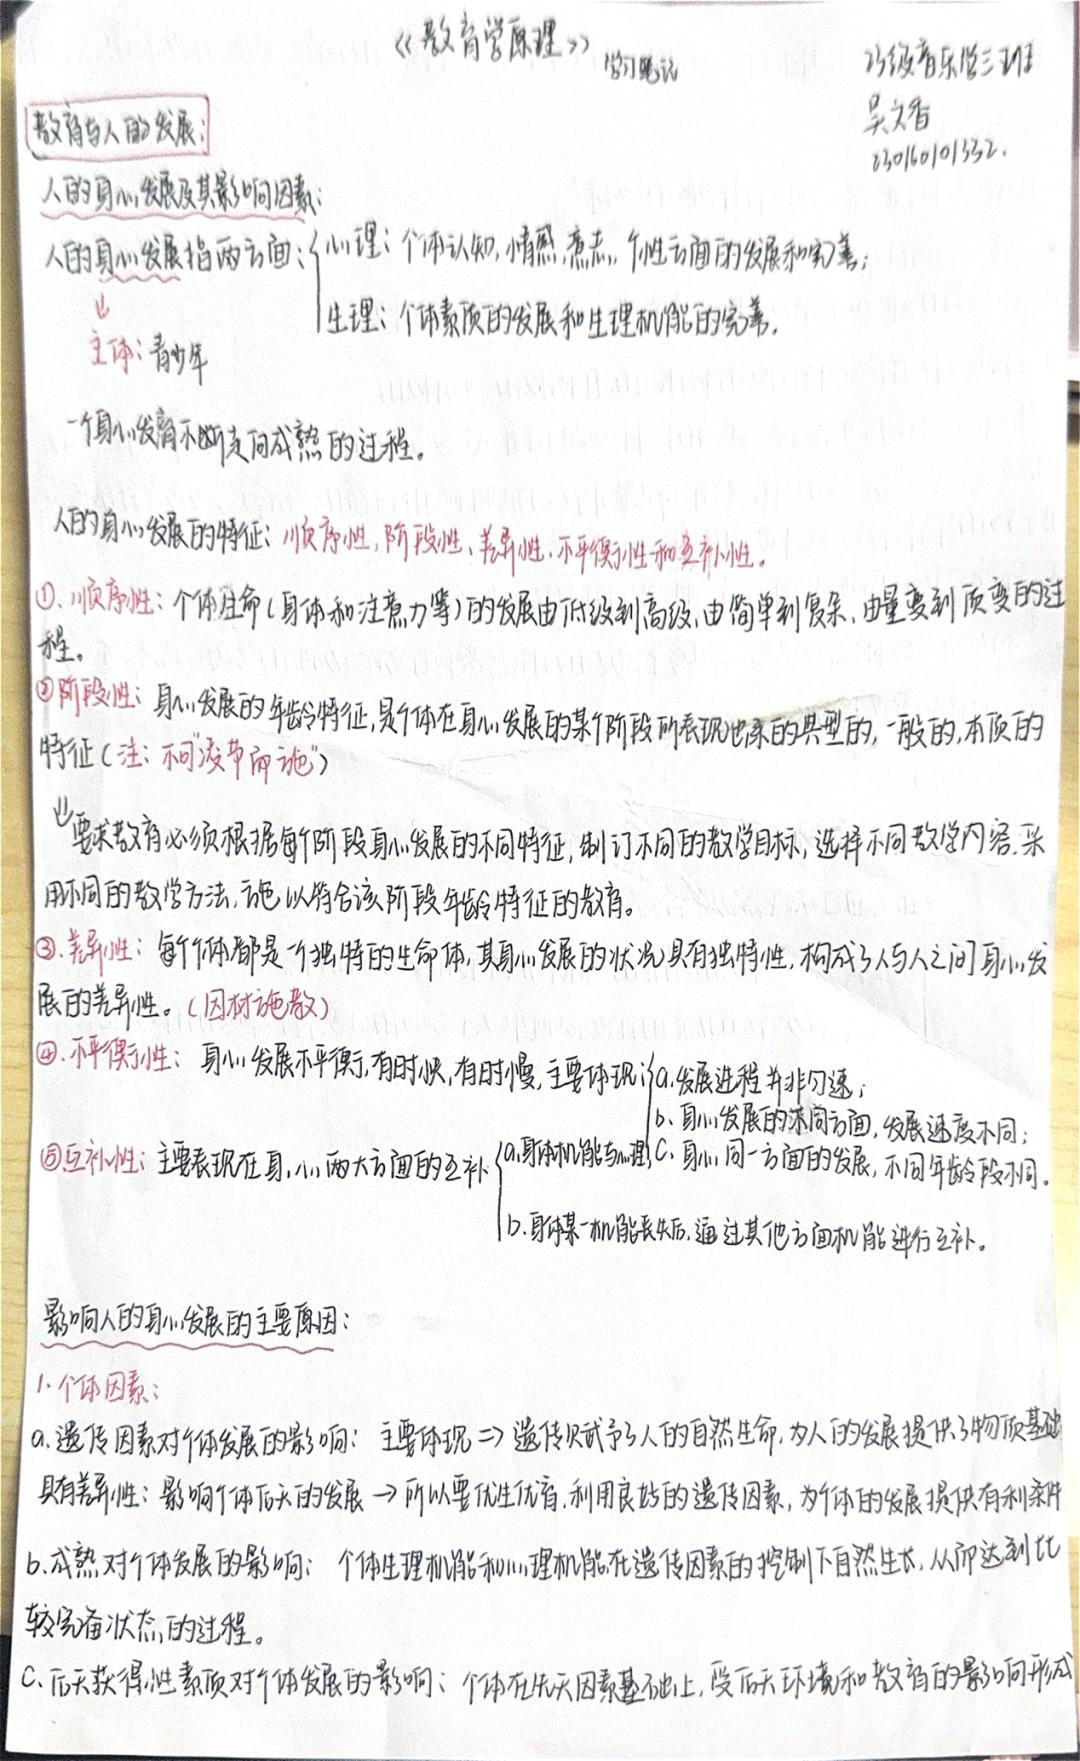 《教育学原理》
学习笔记
23级音乐学三班
吴文香
230160101332.
教育与人的发展：
人的身心发展及其影响因素：
人的身心发展指两方面：
心理：个体认知，情感，意志，个性方面的发展和完善；
生理：个体素质的发展和生理机能的完善。
主体：青少年
一个身心发育不断走向成熟的过程。
人的身心发展的特征：顺序性，阶段性、差异性、不平衡性和互补性。
①.顺序性：个体生命（身体和注意力等）的发展由低级到高级，由简单到复杂、由量变到质变的过
程。
②阶段性：身心发展的年龄特征，是个体在身心发展的某个阶段所表现出来的典型的，一般的，本质的
特征（注：不可"凌节而施"）
要求教育必须根据每个阶段身心发展的不同特征，制订不同的教学目标，选择不同教学内容，采
用不同的教学方法，施以符合该阶段年龄特征的教育。
③.差异性：每个个体都是一个独特的生命体，其身心发展的状况具有独特性，构成了人与人之间身心发
展的差异性。（因材施教）
④.不平衡性：身心发展不平衡，有时快，有时慢，主要体现：
a.发展进程并非匀速；
b.身心发展的不同方面，发展速度不同；
c.身心同一方面的发展，不同年龄段不同。
⑤互补性：主要表现在身，心两大方面的互补
a.身体机能与心理
b.身体某一机能丧失后，通过其他方面机能进行互补。
影响人的身心发展的主要原因：
1.个体因素：
a.遗传因素对个体发展的影响：主要体现⇒遗传赋予了人的自然生命，为人的发展提供了物质基础
具有差异性：影响个体后天的发展→所以要优生优育，利用良好的遗传因素，为个体的发展提供有利条件
b.成熟对个体发展的影响：个体生理机能和心理机能在遗传因素的控制下自然生长，从而达到比
较完备状态的过程。
C.后天获得性素质对个体发展的影响：个体在先天因素基础上，受后天环境和教育的影响形成